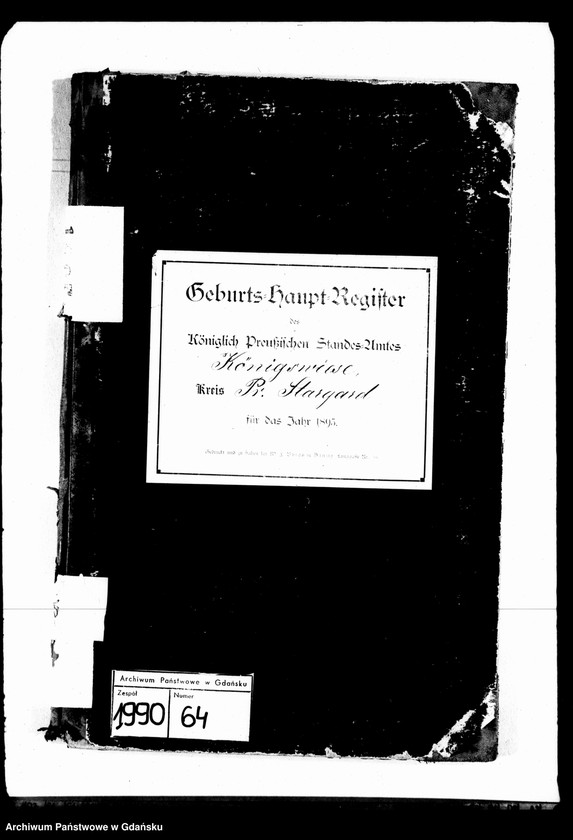 Geburts-Haupt-Register
des
Königlich Preußischen Standes-Amtes
Königswiese,
Kreis Pr. Stargard
für das Jahr 1895.
Archiwum Państwowe w Gdańsku
Zespół Numer
1990 64
Archiwum Państwowe w Gdańsku